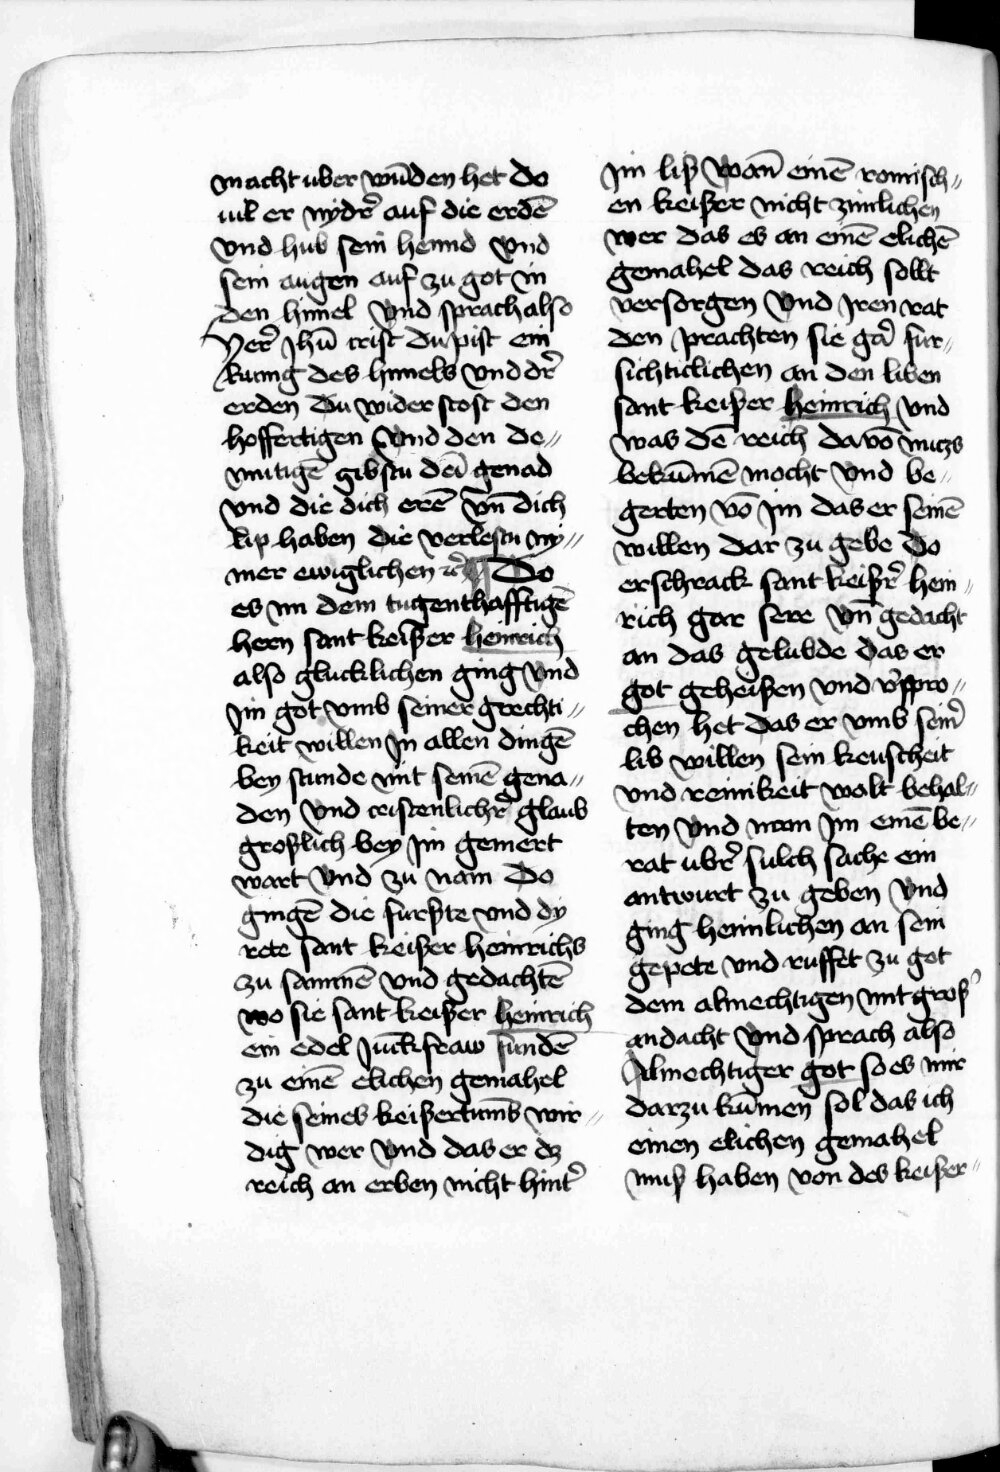 macht uber wūden het do
viel er nydr̄ auf die erdē
vnd hub sein hennd vnd
sein augen auf zu got in
den himel vnd sprach also
Her̄ Jhū crist du pist ein
kunig des himels vnd dr̄
erden Du wider stost den
hoffertigen vnd den de//
mutigē gibstu deī genad
vnd die dich erē vn̄ dich
lip haben die verlestu ny//
mer ewiglichen rc̄ Do
es nn dem tugenthafftigē
hern sant keißer heinrich
also glucklichen ging vnd
jm got vmb seiner gerechti//
keit willen Jn allen dingē
bey stunde mit seinē gena//
den vnd cristenlichr̄ glaub
großlich bey jm gemert
wart vnd zu nam Do
gingē die furste vnd dy
rete sant keißer heinrichs
zu sammē vnd gedachtē
wo sie sant keißer heinrich
ein edel Junckfraw fundē
zu einē elichen gemahel
die seines keißertumbs wir//
dig wer vnd das er dz
reich an erben nicht hintr̄
jm liß wan̄ einē romisch//
en keißer nicht zimlichen
wer das es an einē elichē
gemahel das reich sollt
versorgen vnd jren rat
den prachten sie gar̄ fur//
sichticlichen an den liben
sant keißer heinrich vnd
was dē reich davō nuczs
bekūmē mocht vnd be//
gerten vō jm das er seinē
willen dar zu gebe Do
erschrack sant keißr̄ hein//
rich gar sere vn̄ gedacht
an das gelubde das er
got geheißen vnd v̄spro//
chen het das er vmb seinr̄
lib willen sein keuscheit
vnd reinikeit wolt behal//
ten vnd nam jm einē be//
rat ubr̄ sulch sache ein
antwurt zu geben vnd
ging heimlichen an sein
gepete vnd ruffet zu got
dem almechtigen mit groß̄
andacht vnd sprach also
Almechtiger got so es mir
darzu kūmen sol das ich
einen elichen gemahel
muß haben von des keißer//